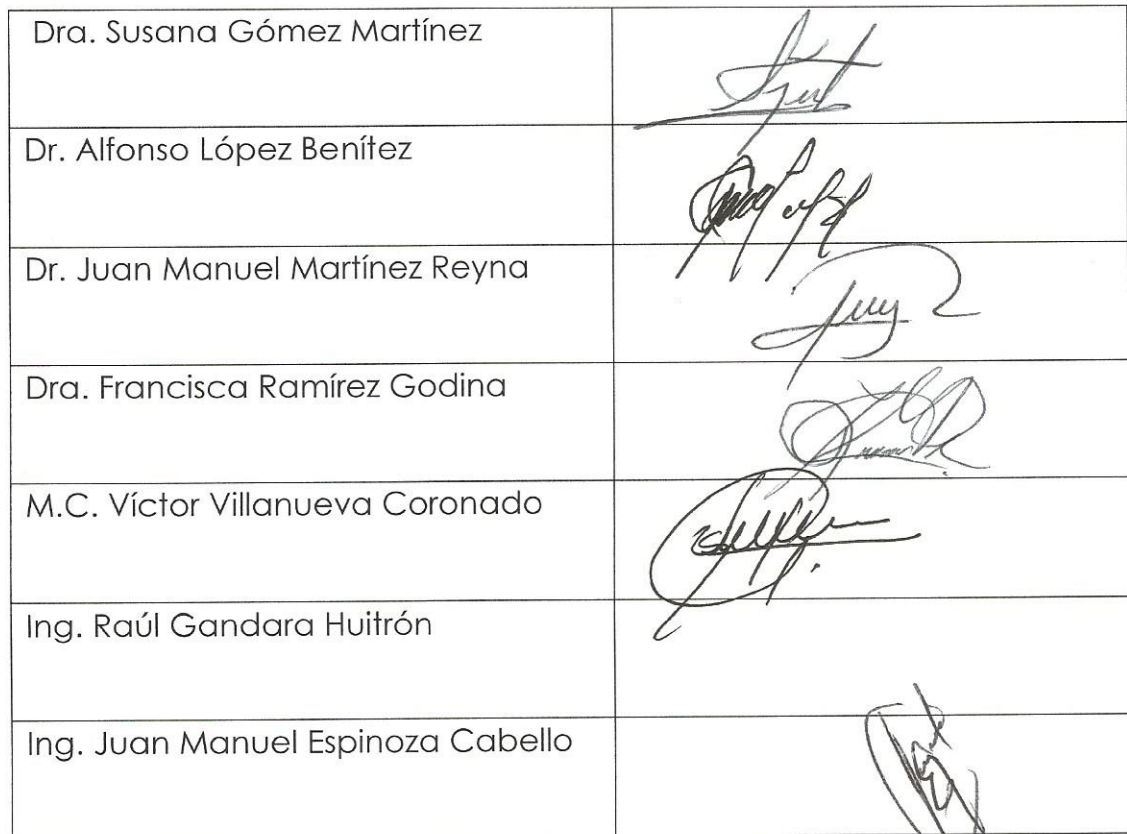 Dra. Susana Gómez Martínez
Dr. Alfonso López Benítez
Dr. Juan Manuel Martínez Reyna
Dra. Francisca Ramírez Godina
M.C. Víctor Villanueva Coronado
Ing. Raúl Gandara Huitrón
Ing. Juan Manuel Espinoza Cabello